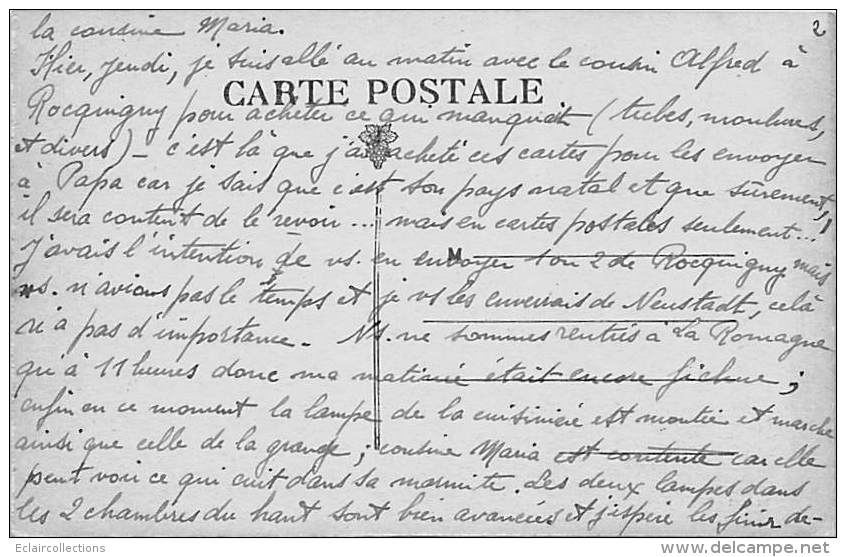 la cousine Maria.
2
Hier, jeudi, je suis allé au matin avec le cousin Alfred à
CARTE POSTALE
Rocquigny pour acheter ce qui manquait (tubes, moulures,
et divers) – c'est là que j'ai acheté ces cartes pour les envoyer
à Papa car je sais que c'est son pays natal et que sûrement,
il sera content de le revoir... mais en cartes postales seulement...!
J'avais l'intention de vs. en envoyer 1 ou 2 de Rocquigny mais
M
ns. n'avions pas le temps et je vs les enverrais de Neustadt, celà
n'a pas d'importance. Ns. ne sommes rentrés à La Romagne
qu'à 11 heures donc ma matinée était encore fichue ;
enfin en ce moment la lampe de la cuisinière est montée et marche
ainsi que celle de la grange ; cousine Maria est contente car elle
peut voir ce qui cuit dans sa marmite. Les deux lampes dans
les 2 chambres du haut sont bien avancées et j'espère les finir de-
Eclaircollections
delcampe.net